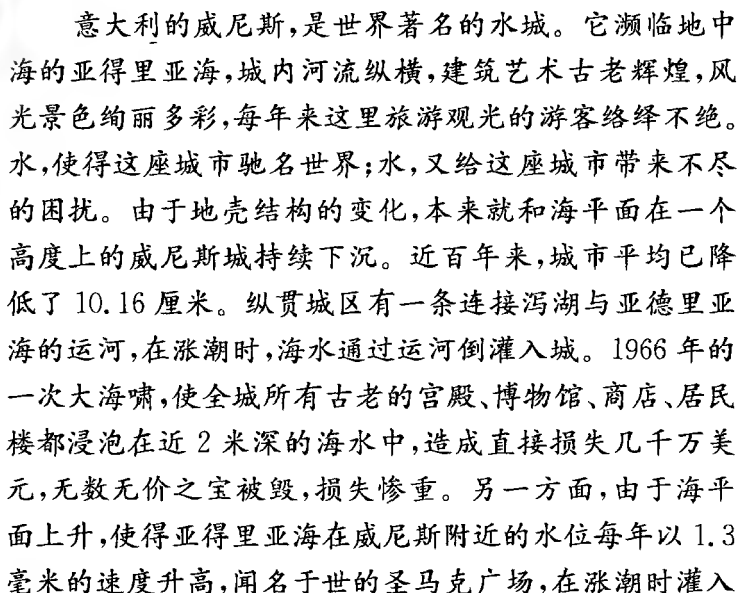 意大利的威尼斯,是世界著名的水城。它濒临地中
海的亚得里亚海,城内河流纵横,建筑艺术古老辉煌,风
光景色绚丽多彩,每年来这里旅游观光的游客络绎不绝。
水,使得这座城市驰名世界;水,又给这座城市带来不尽
的困扰。由于地壳结构的变化,本来就和海平面在一个
高度上的威尼斯城持续下沉。近百年来,城市平均已降
低了 10.16 厘米。纵贯城区有一条连接泻湖与亚德里亚
海的运河,在涨潮时,海水通过运河倒灌入城。1966 年的
一次大海啸,使全城所有古老的宫殿、博物馆、商店、居民
楼都浸泡在近 2 米深的海水中,造成直接损失几千万美
元,无数无价之宝被毁,损失惨重。另一方面,由于海平
面上升,使得亚得里亚海在威尼斯附近的水位每年以 1.3
毫米的速度升高,闻名于世的圣马克广场,在涨潮时灌入